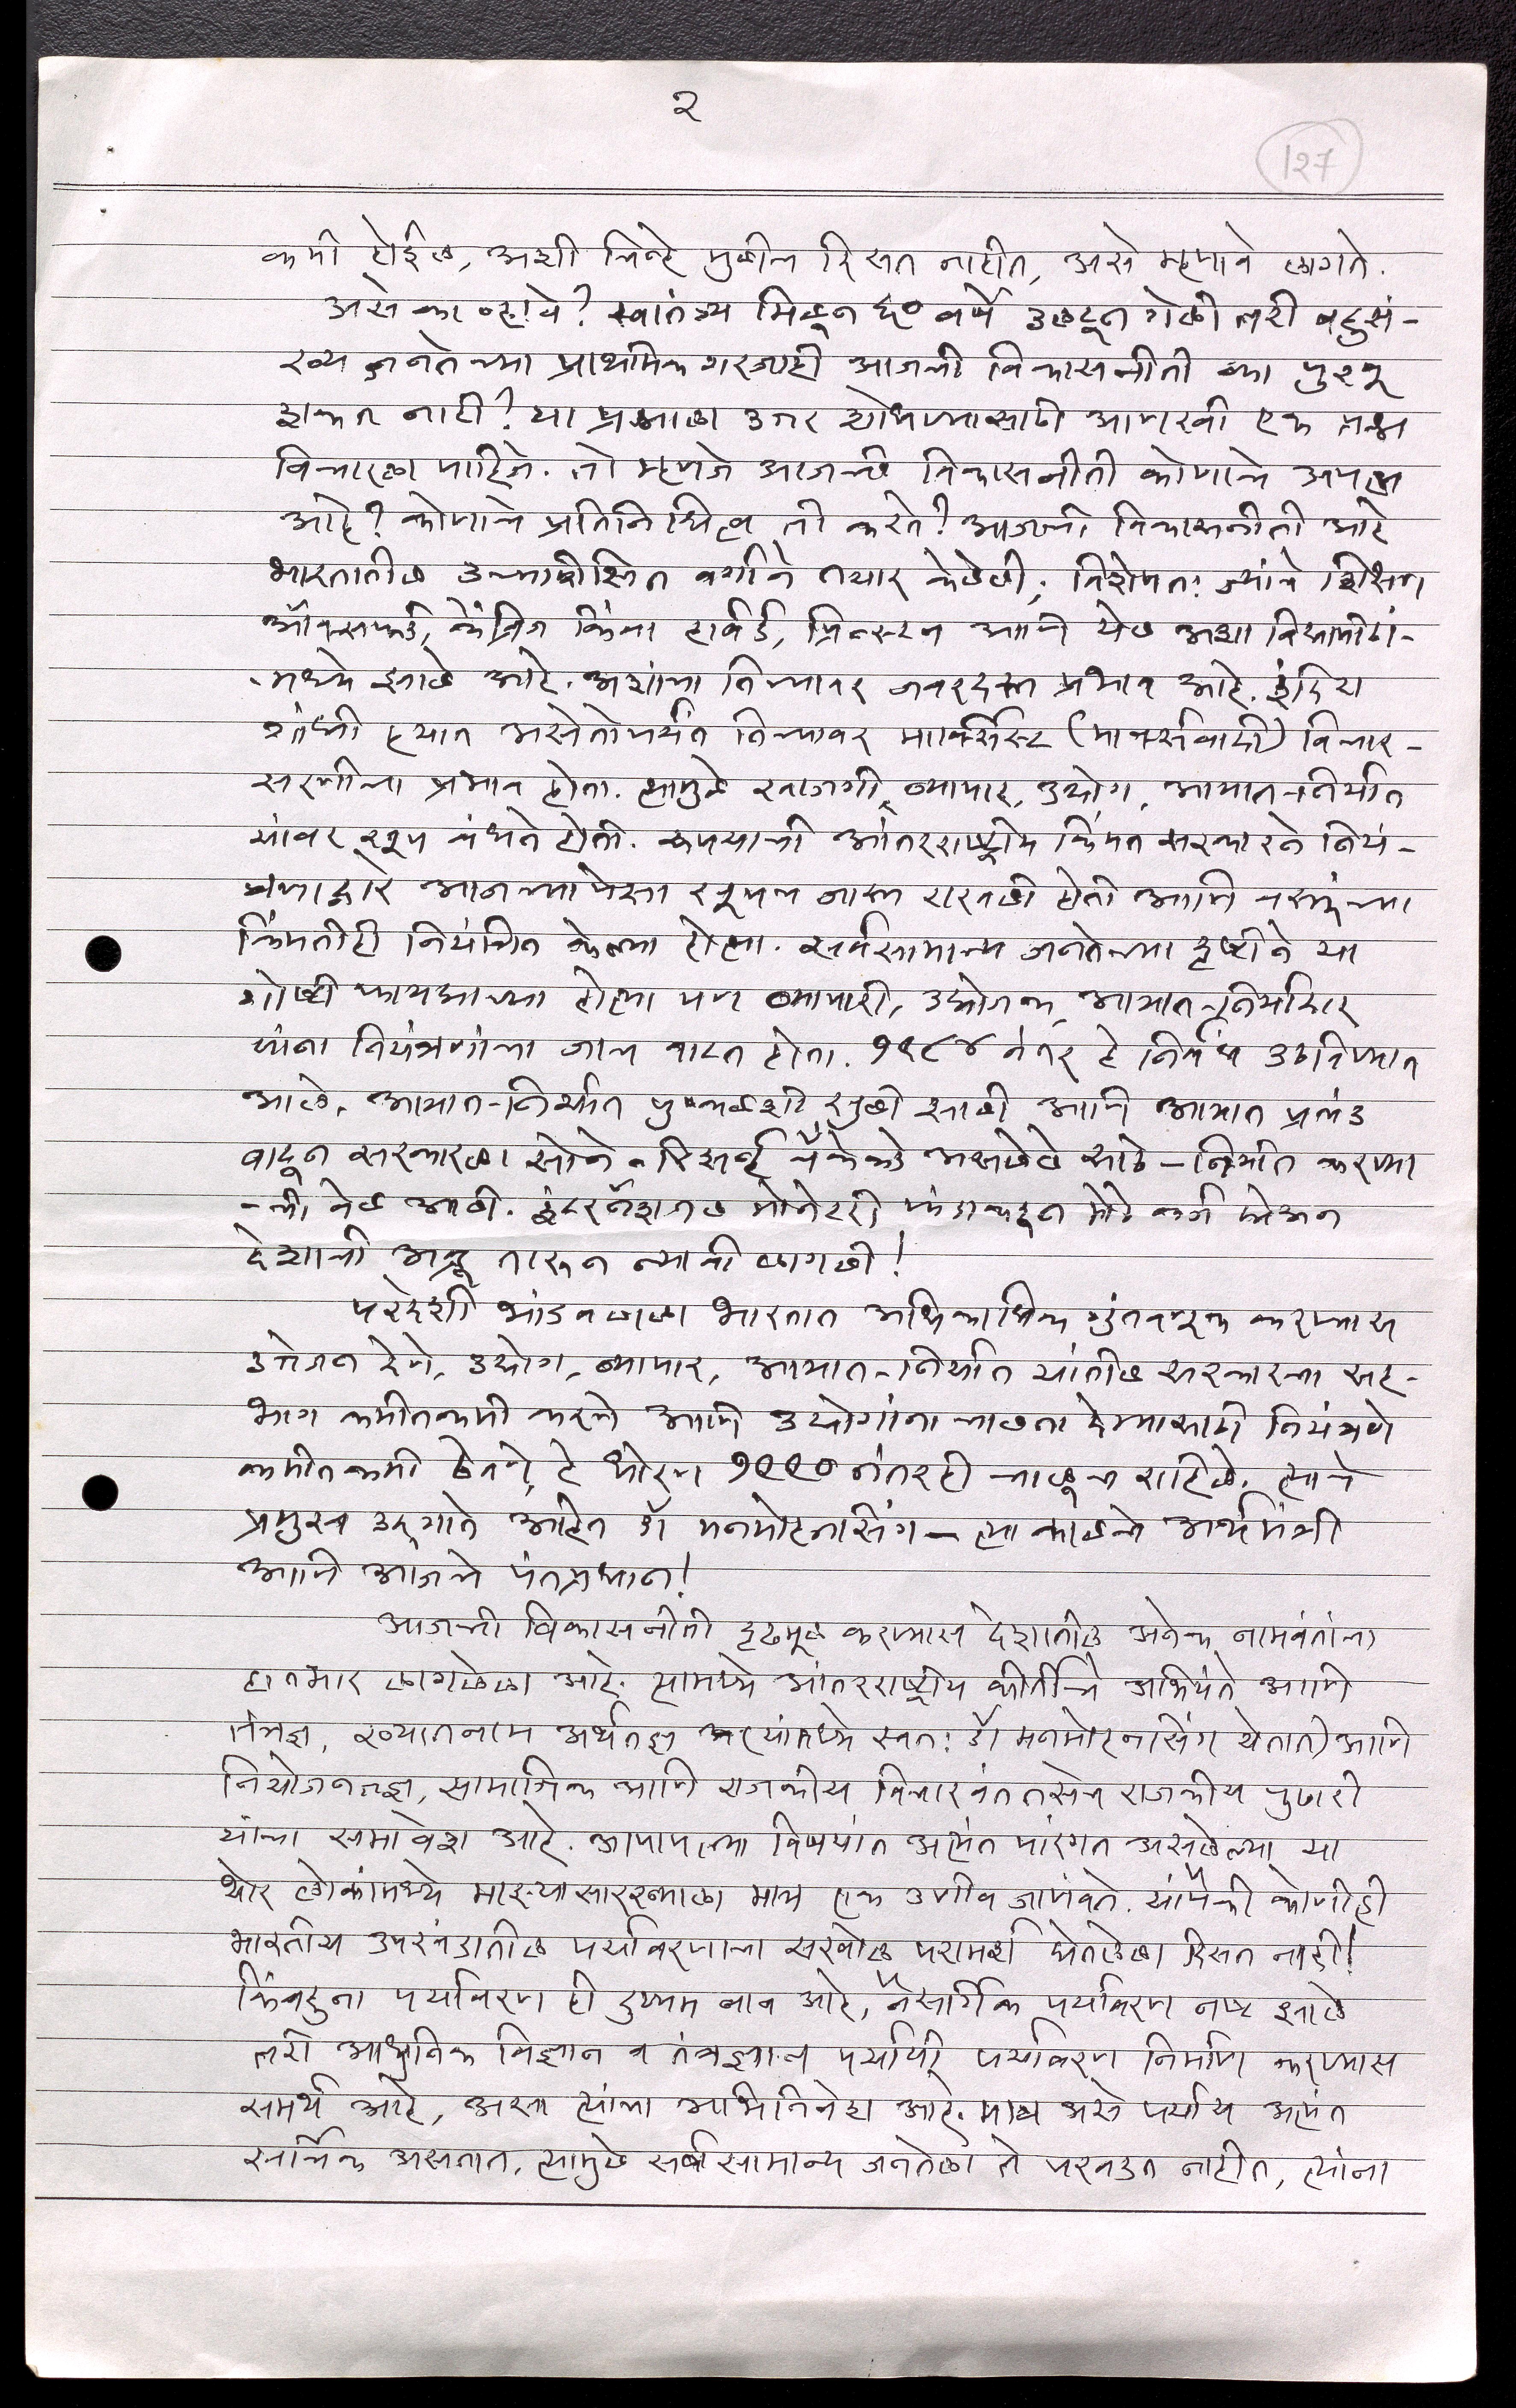 २
127
कमी होईल, अशी चिन्हे मुळीच दिसत नाहीत, असे म्हणावे लागते.
असे का व्हावे? स्वातंत्र्य मिळून ६० वर्षे उलटून गेली तरी बहुसं-
ख्य जनतेच्या प्राथमिक गरजाही आजची विकासनीती का पुरवू
शकत नाही? या प्रश्नाला उत्तर शोधण्यासाठी आणखी एक प्रश्न
विचारला पाहिजे. तो म्हणजे आजची विकासनीती कोणाचे अपत्य
आहे? कोणाचे प्रतिनिधित्व ती करते? आजची विकासनीती आहे
भारतातील उच्चशिक्षित वर्गाने तयार केलेली; विशेषत: ज्यांचे शिक्षण
ऑक्सफर्ड, केंब्रिज किंवा हार्वर्ड, प्रिन्स्टन आणि येल अशा विद्यापीठां-
-मध्ये झाले आहे. अशांचा तिच्यावर जबरदस्त प्रभाव आहे. इंदिरा
गांधी हयात असेतोपर्यंत तिच्यावर मार्क्सिस्ट (मार्क्सवादी) विचार-
सरणीचा प्रभाव होता. त्यामुळे खाजगी, व्यापार, उद्योग, आयात-निर्यात
यांवर खूप बंधने होती. रुपयाची आंतरराष्ट्रीय किंमत सरकारने नियं-
त्रणाद्वारे आजच्यापेक्षा खूपच जास्त राखली होती आणि वस्तूंच्या
किंमतीही नियंत्रित केल्या होत्या. सर्वसामान्य जनतेच्या दृष्टीने या
गोष्टी फायद्याच्या होत्या पण व्यापारी, उद्योजक, आयात-निर्यातदार
यांना नियंत्रणांचा जाच वाटत होता. १९८४ नंतर हे निर्बंध उठविण्यात
आले. आयात-निर्यात पुष्कळशी खुली झाली आणि आयात प्रचंड
वाढून सरकारला सोने - रिझर्व्ह बँकेकडे असलेले साठे - निर्यात करण्या
-ची वेळ आली. इंटरनॅशनल मोनेटरी फंडाकडून मोठे कर्ज घेऊन
देशाची अब्रू तारून न्यावी लागली!
परदेशी भांडवलाला भारतात अधिकाधिक गुंतवणूक करण्यास
उत्तेजन देणे, उद्योग, व्यापार, आयात-निर्यात यांतील सरकारचा सह-
भाग कमीतकमी करणे आणि उद्योगांना चालना देण्यासाठी नियंत्रणे
कमीतकमी ठेवणे, हे धोरण १९९० नंतरही चालूच राहिले. त्याचे
प्रमुख उद्गाते आहेत डॉ मनमोहनसिंग - त्या काळचे अर्थमंत्री
आणि आजचे पंतप्रधान!
आजची विकासनीती दृढमूल करण्यास देशातील अनेक नामवंतांचा
हातभार लागलेला आहे. त्यामध्ये आंतरराष्ट्रीय कीर्तीचे अभियंते आणि
तंत्रज्ञ, ख्यातनाम अर्थतज्ञ (त्यांमध्ये स्वत: डॉ मनमोहनसिंग येतात) आणि
नियोजनतज्ञ, सामाजिक आणि राजकीय विचारवंत तसेच राजकीय पुढारी
यांचा समावेश आहे. आपापल्या विषयांत अत्यंत पारंगत असलेल्या या
थोर लोकांमध्ये माझ्यासारख्याला मात्र एक उणीव जाणवते. यांपैकी कोणीही
भारतीय उपखंडातील पर्यावरणाचा सखोल परामर्श घेतलेला दिसत नाही!
किंबहुना पर्यावरण ही दुय्यम बाब आहे, नैसर्गिक पर्यावरण नष्ट झाले
तरी आधुनिक विज्ञान व तंत्रज्ञान पर्यायी पर्यावरण निर्माण करण्यास
समर्थ आहे, असा त्यांचा अभिनिवेश आहे. मात्र असे पर्याय अत्यंत
खर्चिक असतात, त्यामुळे सर्वसामान्य जनतेला ते परवडत नाहीत, त्यांना